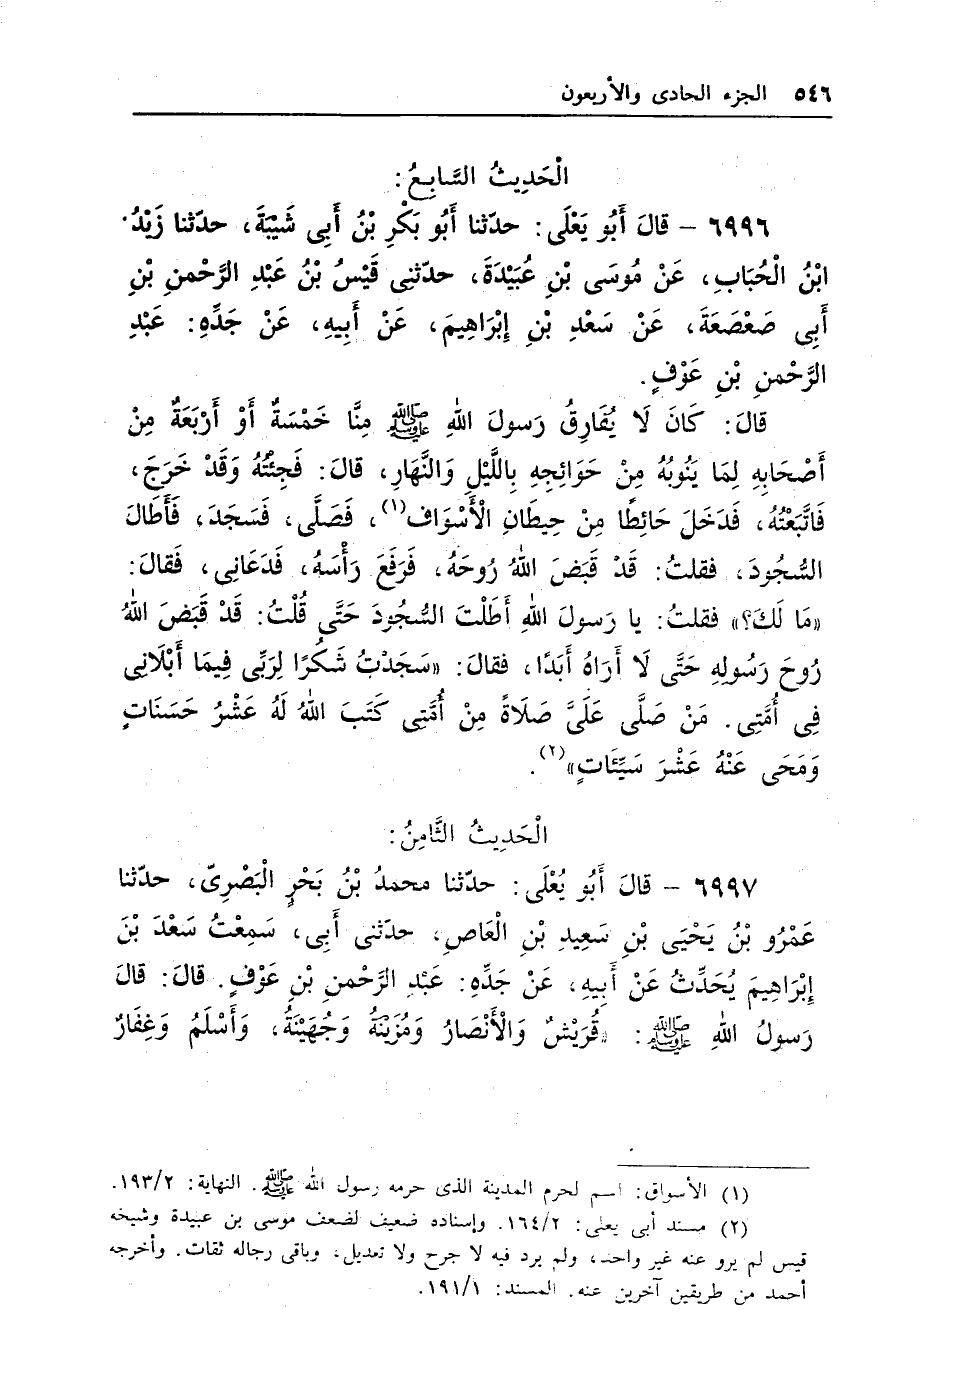 ٥٤٦ الجزء الحادى والأربعون
الْحَدِيثُ السَّابِعُ:
٦٩٩٦ - قالَ أَبُو يَعْلَى: حدّثنا أَبُو بَكْرِ بْنُ أَبِى شَيْبَةَ، حدّثنا زَيْدُ
ابْنُ الْحُبَابِ، عَنْ مُوسَى بْنِ عُبَيْدَةَ، حدّثنِى قَيْسُ بْنُ عَبْدِ الرَّحْمنِ بْنِ
أَبِى صَعْصَعَةَ، عَنْ سَعْدِ بْنِ إِبْرَاهِيمَ، عَنْ أَبِيهِ، عَنْ جَدِّهِ: عَبْدِ
الرَّحْمنِ بْنِ عَوْفٍ.
قالَ: كَانَ لَا يُفَارِقُ رَسولَ اللهِ ﷺ مِنَّا خَمْسَةٌ أَوْ أَرْبَعَةٌ مِنْ
أَصْحَابِهِ لِمَا يَنُوبُهُ مِنْ حَوَائِجِهِ بِاللَّيْلِ وَالنَّهَارِ، قالَ: فَجِئْتُهُ وَقَدْ خَرَجَ،
فَاتَّبَعْتُهُ، فَدَخَلَ حَائِطًا مِنْ حِيطَانِ الْأَسْوَاف(١)، فَصَلَّى، فَسَجَدَ، فَأَطَالَ
السُّجُودَ، فقلتُ: قَدْ قَبَضَ اللهُ رُوحَهُ، فَرَفَعَ رَأْسَهُ، فَدَعَانِى، فَقالَ:
«مَا لَكَ؟» فقلتُ: يا رَسولَ اللهِ أَطَلْتَ السُّجُودَ حَتَّى قُلْتُ: قَدْ قَبَضَ اللهُ
رُوحَ رَسُولِهِ حَتَّى لَا أَرَاهُ أَبَدًا، فقالَ: «سَجَدْتُ شَكْرًا لِرَبِّى فِيمَا أَبْلَانِى
فِى أُمَّتِى. مَنْ صَلَّى عَلَىَّ صَلَاةً مِنْ أُمَّتِى كَتَبَ اللهُ لَهُ عَشْرُ حَسَنَاتٍ
وَمَحَى عَنْهُ عَشْرَ سَيِّئَاتٍ»(٢).
الْحَدِيثُ الثَّامِنُ:
٦٩٩٧ - قالَ أَبُو يُعْلَى: حدّثنا محمدُ بْنُ بَحْرٍ الْبَصْرِىّ، حدّثنا
عَمْرُو بْنُ يَحْيَى بْنِ سَعِيدِ بْنِ الْعَاصِ، حدّثنى أَبِى، سَمِعْتُ سَعْدَ بْنَ
إِبْرَاهِيمَ يُحَدِّثُ عَنْ أَبِيهِ، عَنْ جَدِّهِ: عَبْدِ الرَّحْمنِ بْنِ عَوْفٍ. قالَ: قالَ
رَسولُ اللهِ ﷺ: «قُرَيْشٌ وَالْأَنْصَارُ وَمُزَيْنَةُ وَجُهَيْنَةُ، وَأَسْلَمُ وَغِفَارُ
(١) الأسواق: اسم لحرم المدينة الذى حرمه رسول الله ﷺ. النهاية: ١٩٣/٢.
(٢) مسند أبى يعلى: ١٦٤/٢. وإسناده ضعيف لضعف موسى بن عبيدة وشيخه
قيس لم يرو عنه غير واحد، ولم يرد فيه لا جرح ولا تعديل، وباقى رجاله ثقات. وأخرجه
أحمد من طريقين آخرين عنه. المسند: ١٩١/١.